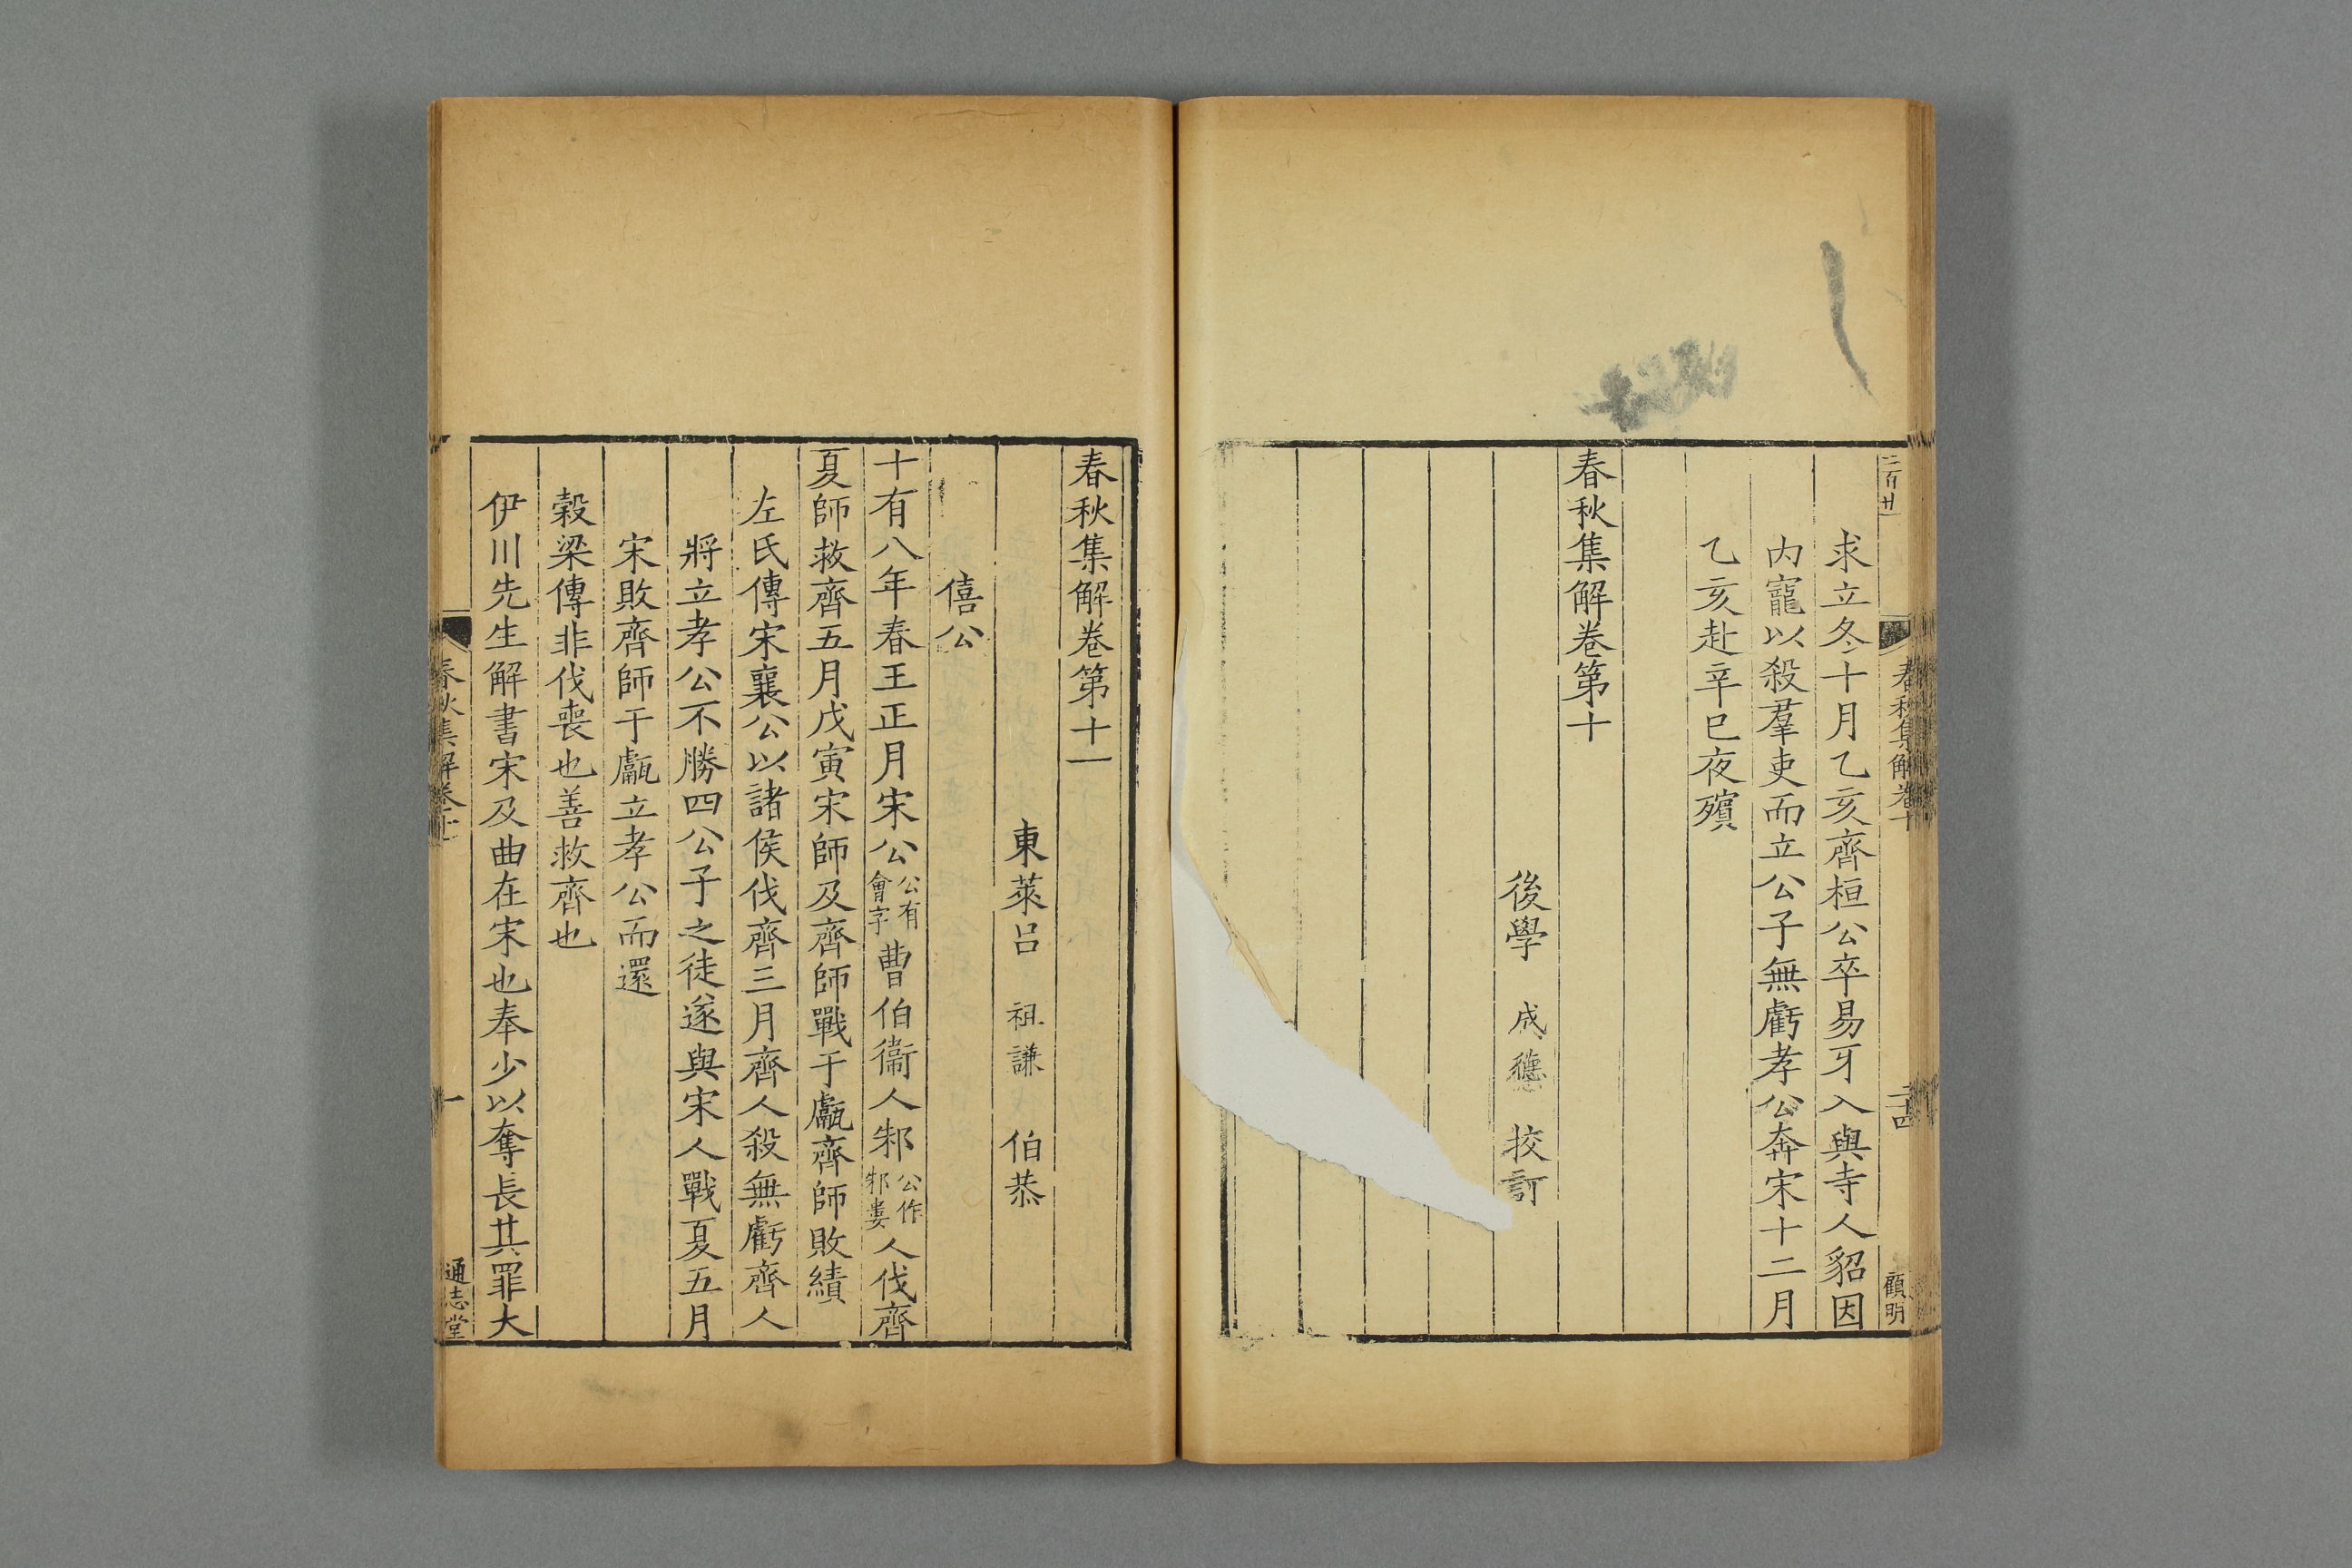 二百廿一
春秋集解卷十
二十四
顧明
求立冬十月乙亥齊桓公卒易牙入與寺人貂因
内寵以殺羣吏而立公子無虧孝公奔宋十二月
乙亥赴辛巳夜殯
春秋集解卷第十
後學 成德 挍訂
春秋集解卷第十一
東萊呂 祖謙 伯恭
僖公
十有八年春王正月宋公公有會字曹伯衞人邾公作邾婁人伐齊
夏師救齊五月戊寅宋師及齊師戰于甗齊師敗績
左氏傳宋襄公以諸侯伐齊三月齊人殺無虧齊人
將立孝公不勝四公子之徒遂與宋人戰夏五月
宋敗齊師于甗立孝公而還
穀梁傳非伐喪也善救齊也
伊川先生解書宋及曲在宋也奉少以奪長其罪大
春秋集解卷十一
一
通志堂